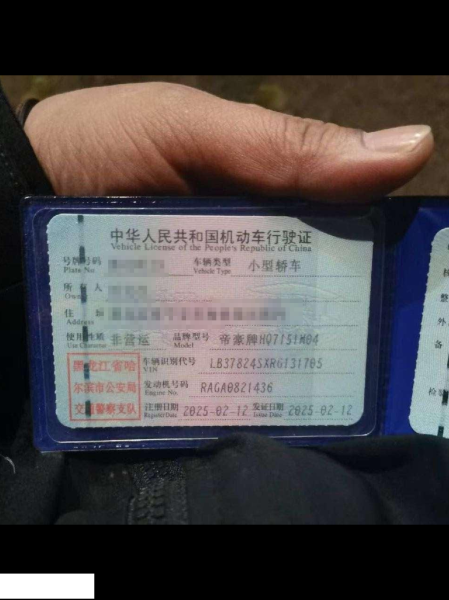 中华人民共和国机动车行驶证
Vehicle License of the People's Republic of China
号牌号码
Plate No.
车辆类型 小型轿车
Vehicle Type
所 人
Owner
住
Address
使用性质 非营运
Use Character
品牌型号 帝豪牌HQ7151M04
Model
黑龙江省哈
尔滨市公安局
交通警察支队
车辆识别代号 LB37824SXRG131705
VIN
发动机号码 RAGA0821436
Engine No.
注册日期 2025-02-12 发证日期 2025-02-12
Register Date Issue Date
核
整
外
备
检验